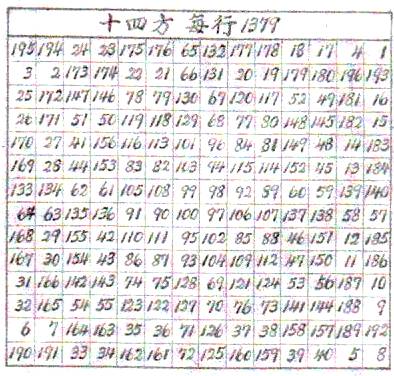 十四方 每行1379
195 194 24 23 175 176 65 132 177 178 18 17 4 1
3 2 173 174 22 21 66 131 20 19 179 180 196 193
25 172 147 146 78 79 130 67 120 117 52 49 181 16
26 171 51 50 119 118 129 68 77 80 148 145 182 15
170 27 41 156 116 113 101 96 84 81 149 48 14 183
169 28 44 153 83 82 103 94 115 114 152 45 13 184
133 134 62 61 105 108 99 98 92 89 60 59 139 140
64 63 135 136 91 90 100 97 106 107 137 138 58 57
168 29 155 42 110 111 95 102 85 88 46 151 12 185
167 30 154 43 86 87 93 104 109 112 47 150 11 186
31 166 142 143 74 75 128 69 121 124 53 56 187 10
32 165 54 55 123 122 127 70 76 73 141 144 188 9
6 7 164 163 35 36 71 126 37 38 158 157 189 192
190 191 33 34 162 161 72 125 160 159 39 40 5 8